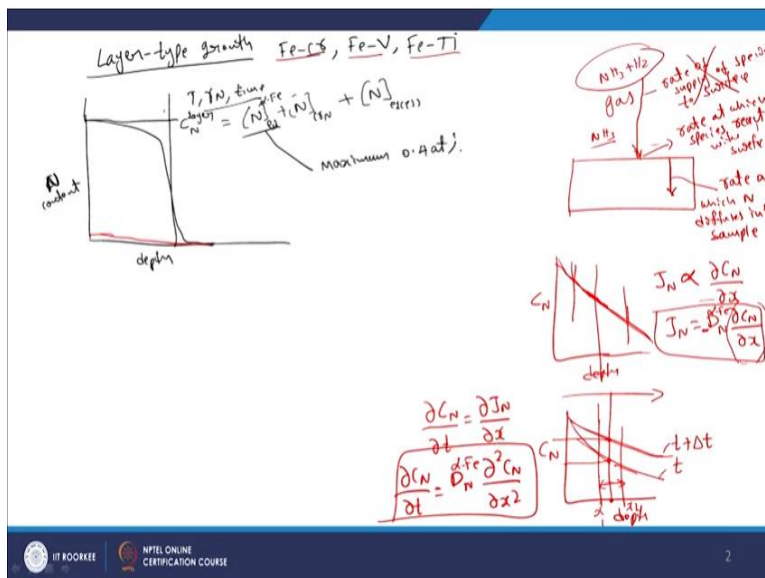 Layer-type growth Fe-Cr, Fe-V, Fe-Ti
T, γN, time
C_N^layer = [N]_eq^α-Fe + [N]_CrN + [N]_excess
Maximum 0.4 at%
N
content
depth
NH3 + H2
gas
rate of supply of speci
to surface
NH3
rate at which
species react
with
surfa
rate a
which N
diffuses in
sample
C_N
depth
J_N ∝ ∂C_N/∂x
J_N = -D_N^α-Fe ∂C_N/∂x
∂C_N/∂t = ∂J_N/∂x
∂C_N/∂t = D_N^α-Fe ∂²C_N/∂x2
C_N
t+Δt
t
x
depth
IIT ROORKEE
NPTEL ONLINE
CERTIFICATION COURSE
2